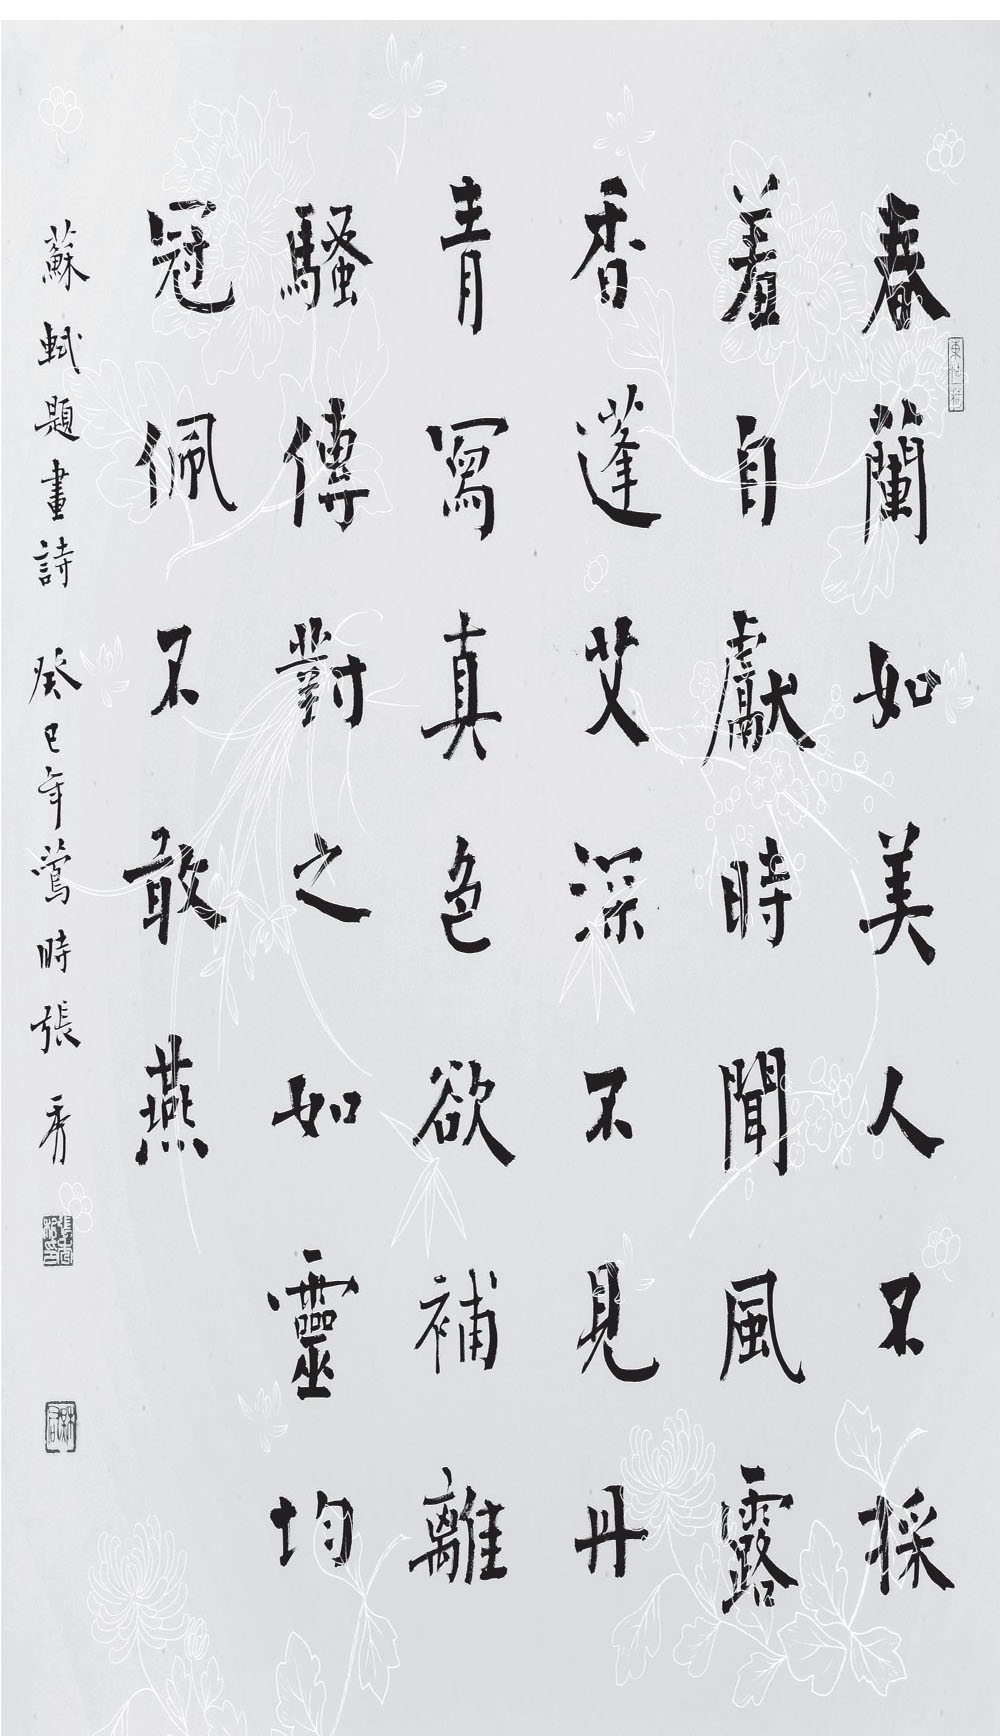 春蘭如美人不採
羞自獻時聞風露
香蓬艾深不見丹
青寫真色欲補離
騷傳對之如靈均
冠佩不敢燕
蘇軾題畫詩 癸巳年鶯時張秀